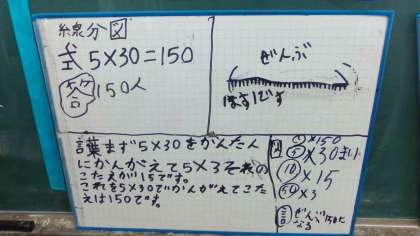 線分図
式 5×30=150
答 150人
ぜんぶ
はすです
言葉 まず5×30をかんたん
にかんがえて5×3それの
こたえが15です。
これを5×30でかんがえてこた
えは150です。
図
①×150
⑤×30まい
⑩×15
㊿×3
ぜんぶ150に
なる